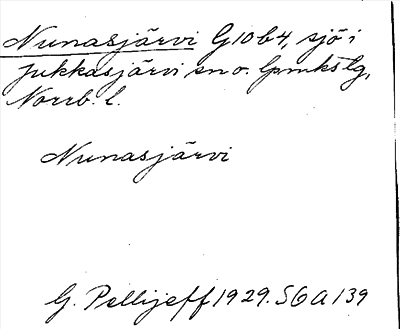 Nunasjärvi G10b4, sjö i
Jukkasjärvi sn o. lpmkslg,
Norrb. l.
Nunasjärvi
G. Pellijeff 1929. S6A139